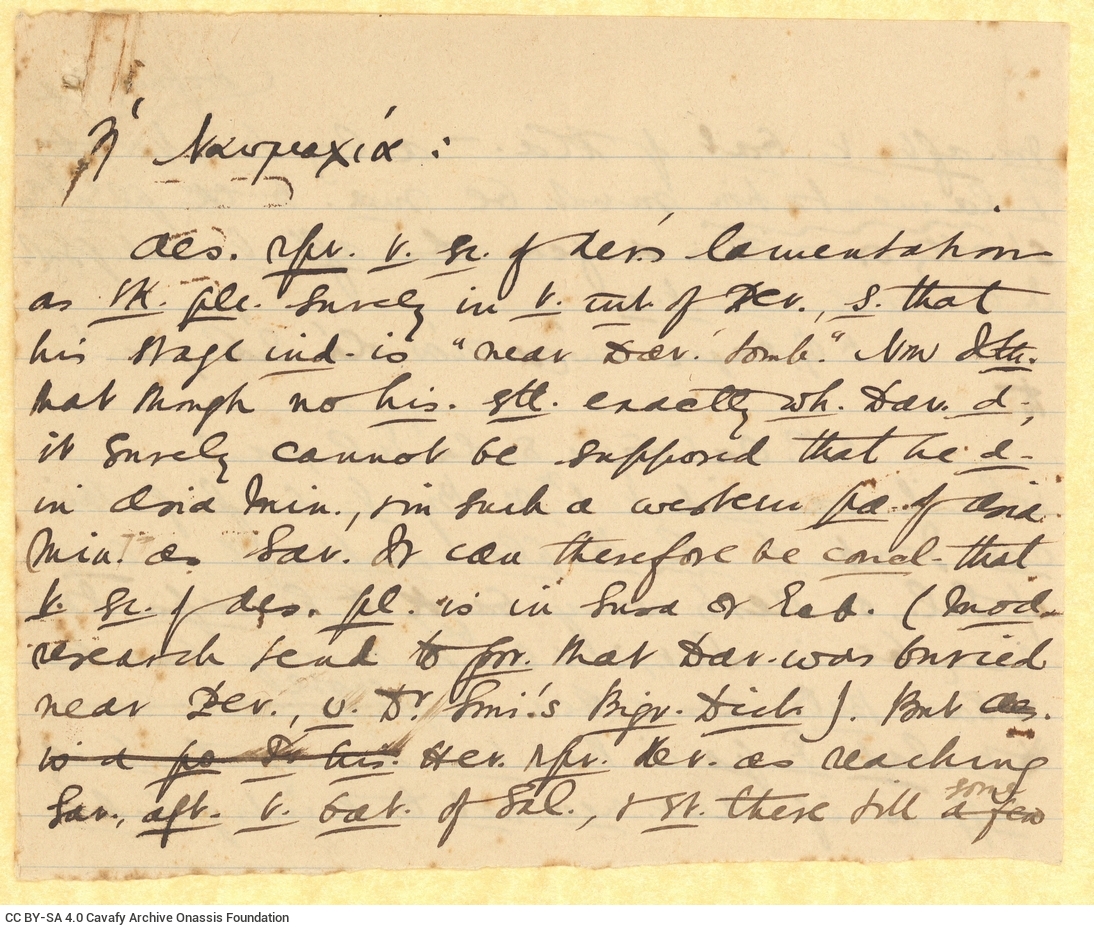 Ἡ Ναυμαχία :
Aes. rpr. t. sc. of Xer.'s lamentation
as tk. plc. surely in t. int. of Per., s. that
his stage ind. is "near Dar. tomb." Now I th.
that though no his. stt. exactly wh. Dar. d.,
it surely cannot be supposed that he d.
in Asia Min., & in such a western pa. of Asia
Min. as Sar. It can therefore be concl. that
t. sc. of Aes. pl. is in Susa or Ecb. (Mod.
research tend to pr. that Dar. was buried
near Per., v. Dr Smi.'s Bigr. Dict.). But Aes.
is a po. Her. rpr. Xer. as reaching
Sar., aft. t. bat. of Sal., & st. there till a few some
CC BY-SA 4.0 Cavafy Archive Onassis Foundation